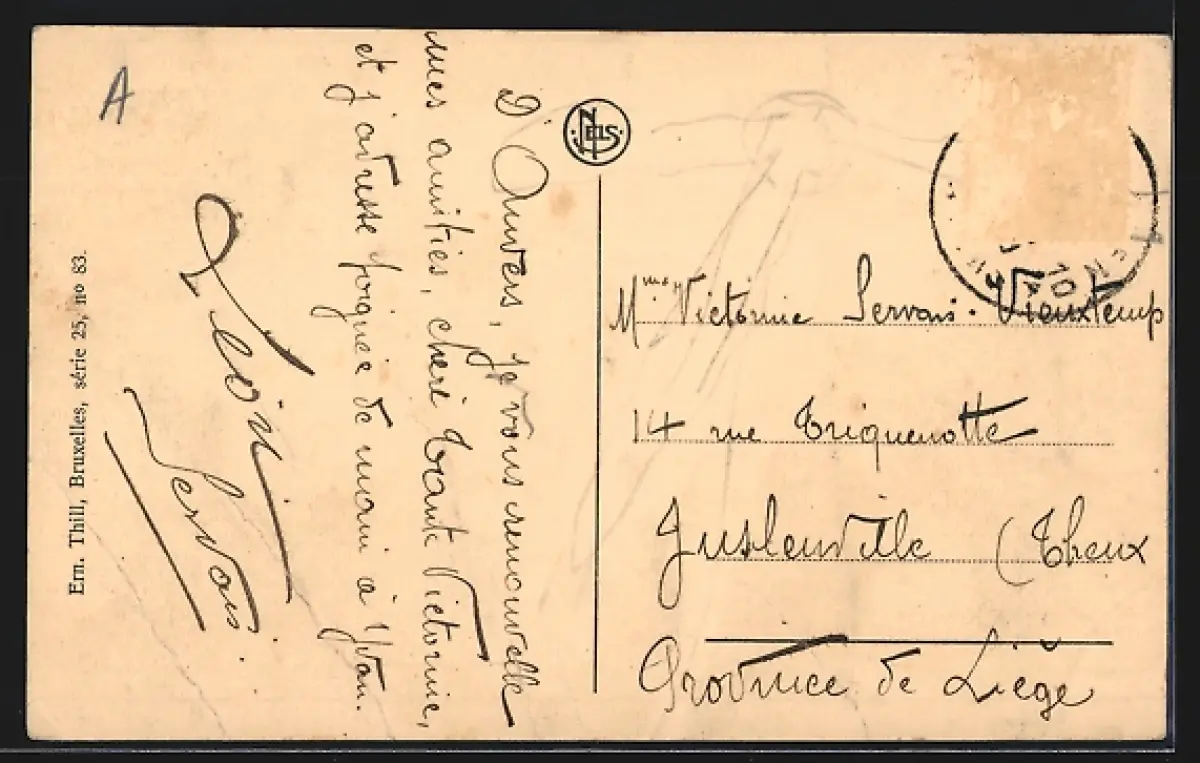 A
D'Anvers, je vous renouvelle
mes amitiés, chere tante Victorine,
et j'adresse poignée de main à Yvan.
Léon
Servais.
Em. Thill, Bruxelles, série 25, nº 63.
NELS
Mme Victorine Servais-Vieuxtemp
14 rue Briquenotte
Juslenville (Theux
Province de Liège
10